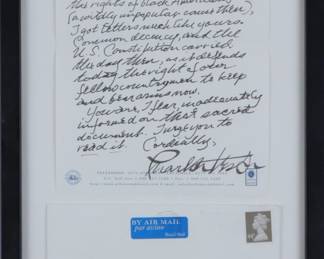 the rights of black Americans
(a wildly unpopular cause then),
I got letters much like yours.
Common decency, and the
U.S. Constitution carried
the day then, as it defends
today the right of our
fellow countrymen to keep
and bear arms now.
You are, I fear, inadequately
informed on that sacred
document. I urge you to
read it.
Cordially,
BY AIR MAIL
par avion
Royal Mail